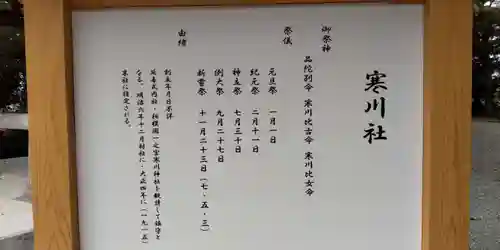 寒川社
御祭神
品陀別命 寒川比古命 寒川比女命
祭儀
元旦祭 一月一日
紀元祭 二月十一日
神玉祭 七月三十日
例大祭 九月二十七日
新嘗祭 十一月二十三日(七・五・三)
由緒
創立年月日不詳
延喜式内社・相模國一之宮寒川神社を勧請して鎮守と
なる。明治六年十二月村社に・大正四年に(一九一五)
本社に指定される。